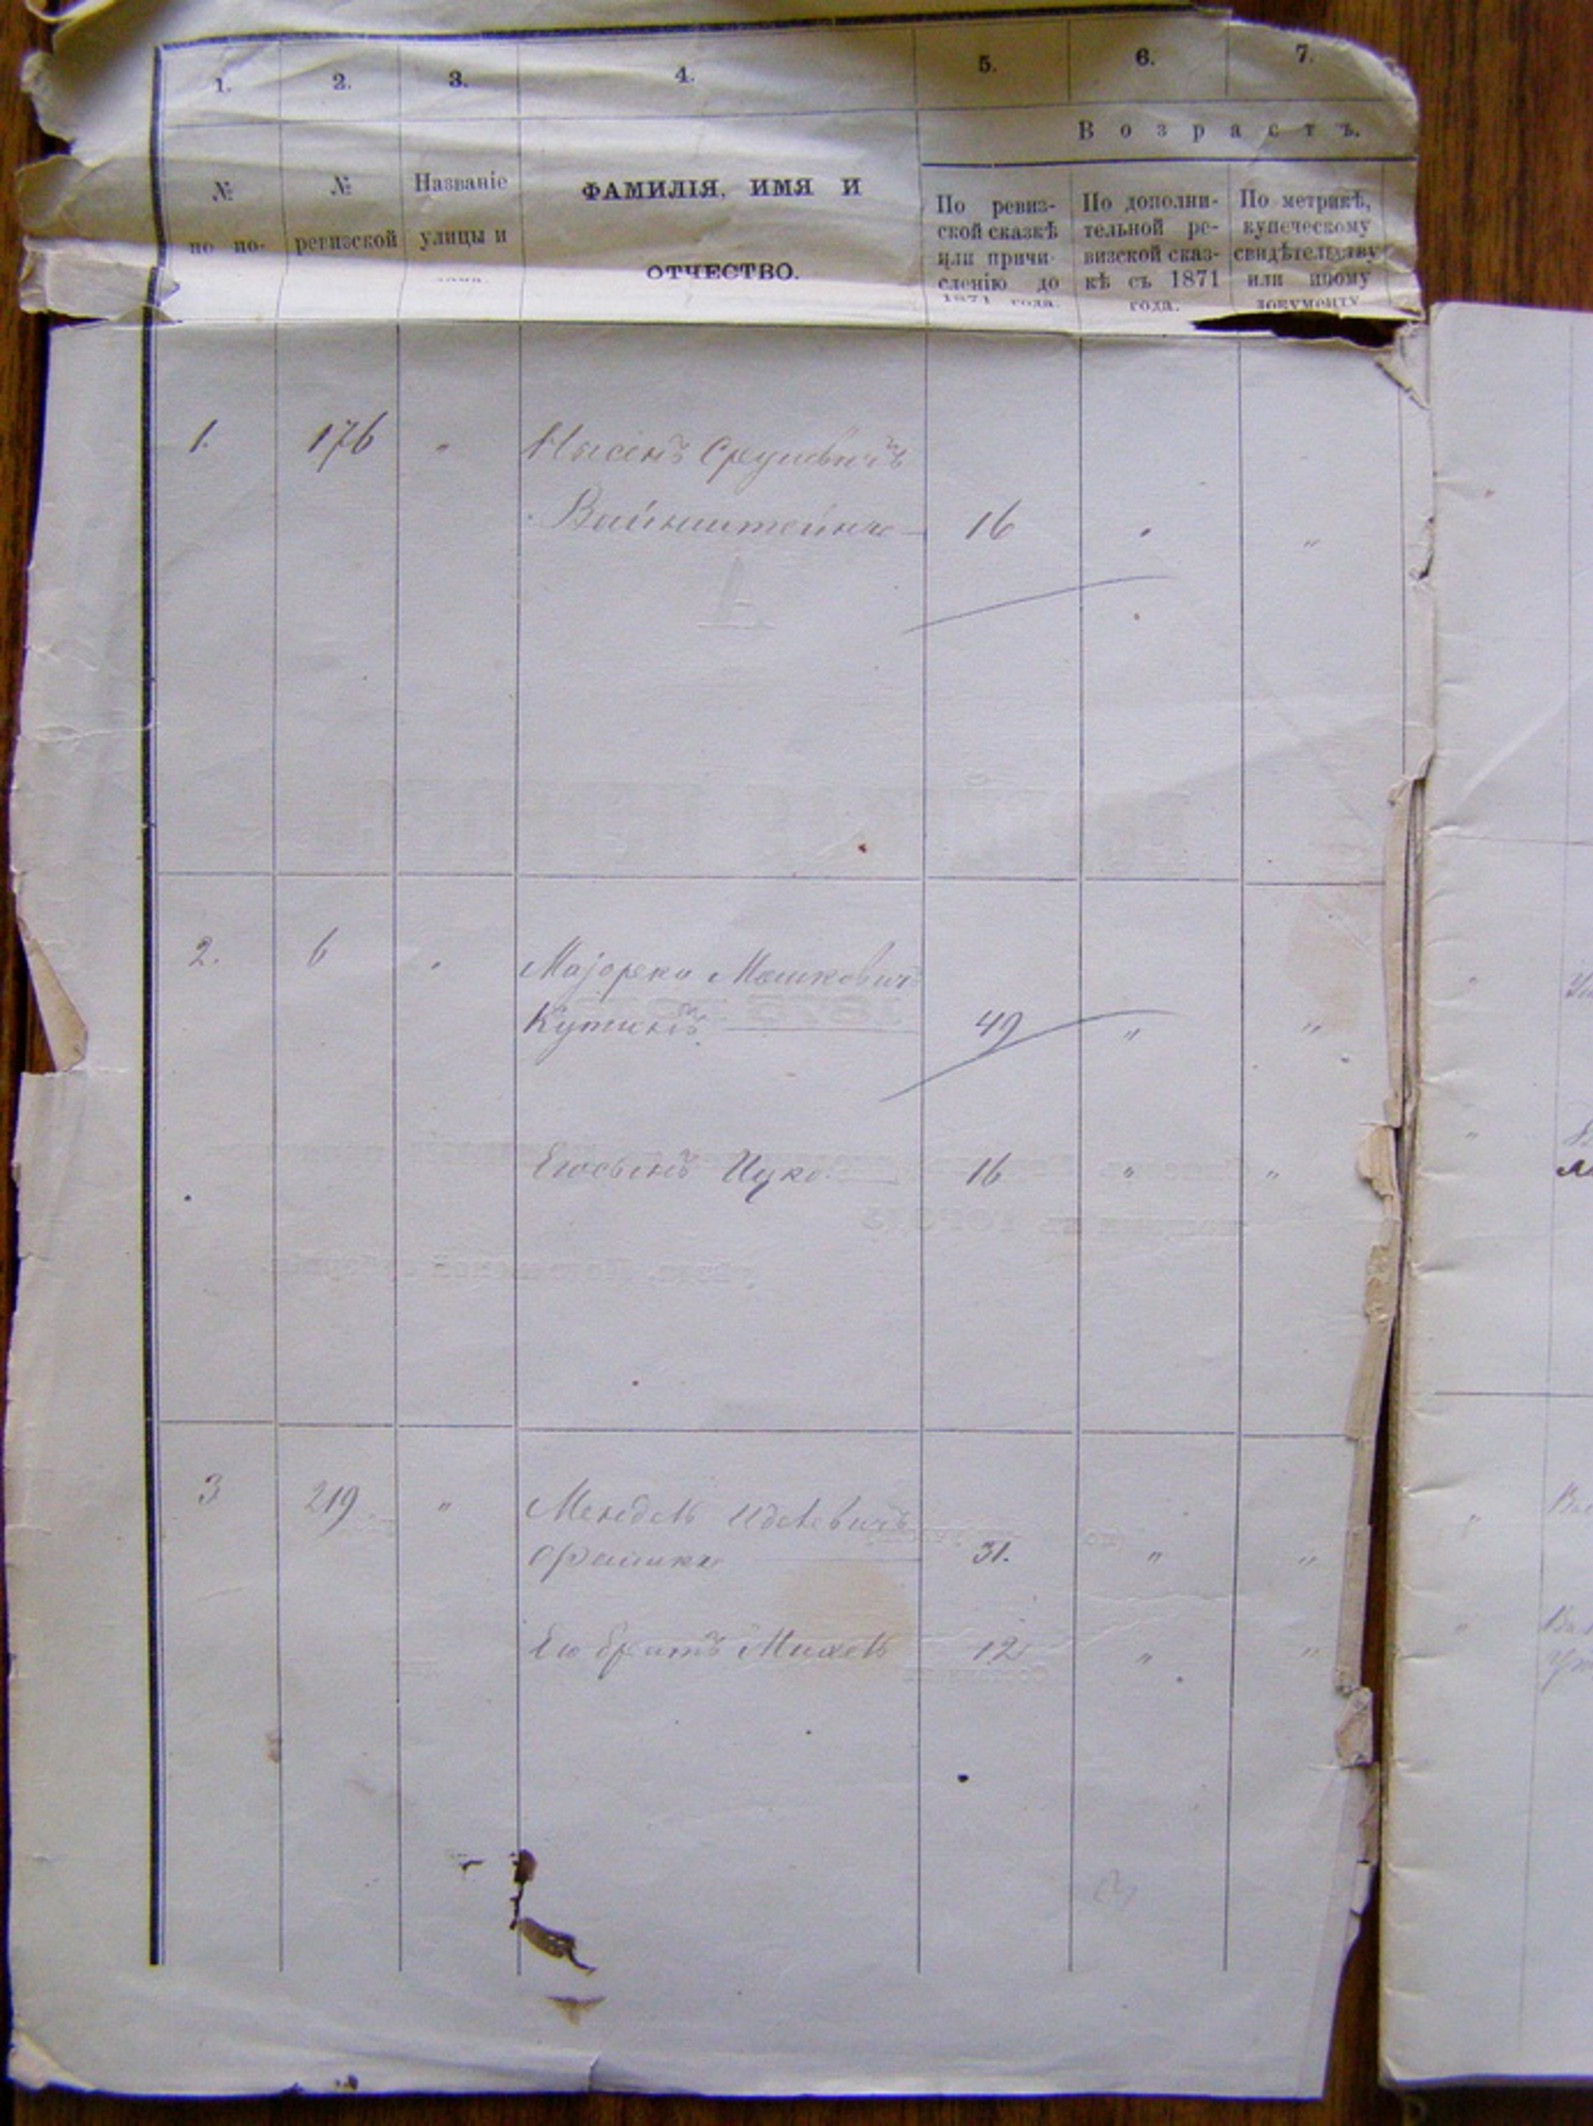 1. 2. 3. 4. 5. 6. 7.
Возрастъ.
№ № Названіе ФАМИЛІЯ, ИМЯ И
по по- ревизской улицы и ОТЧЕСТВО.
По ревиз-
ской сказкѣ
или причи-
сленію до
1871 года.
По дополни-
тельной ре-
визской сказ-
кѣ съ 1871
года.
По метрикѣ,
купеческому
свидѣтельству
или иному
документу
1. 176 " Нысенъ Срулевичъ
Вайнштейнъ 16 " "
2. 6 " Мошковичъ
Кутикъ 49 " "
Его сынъ Ицко 16 " "
3 219 " Мендель Иделевичъ
31. " "
Его братъ Михель 12 " "